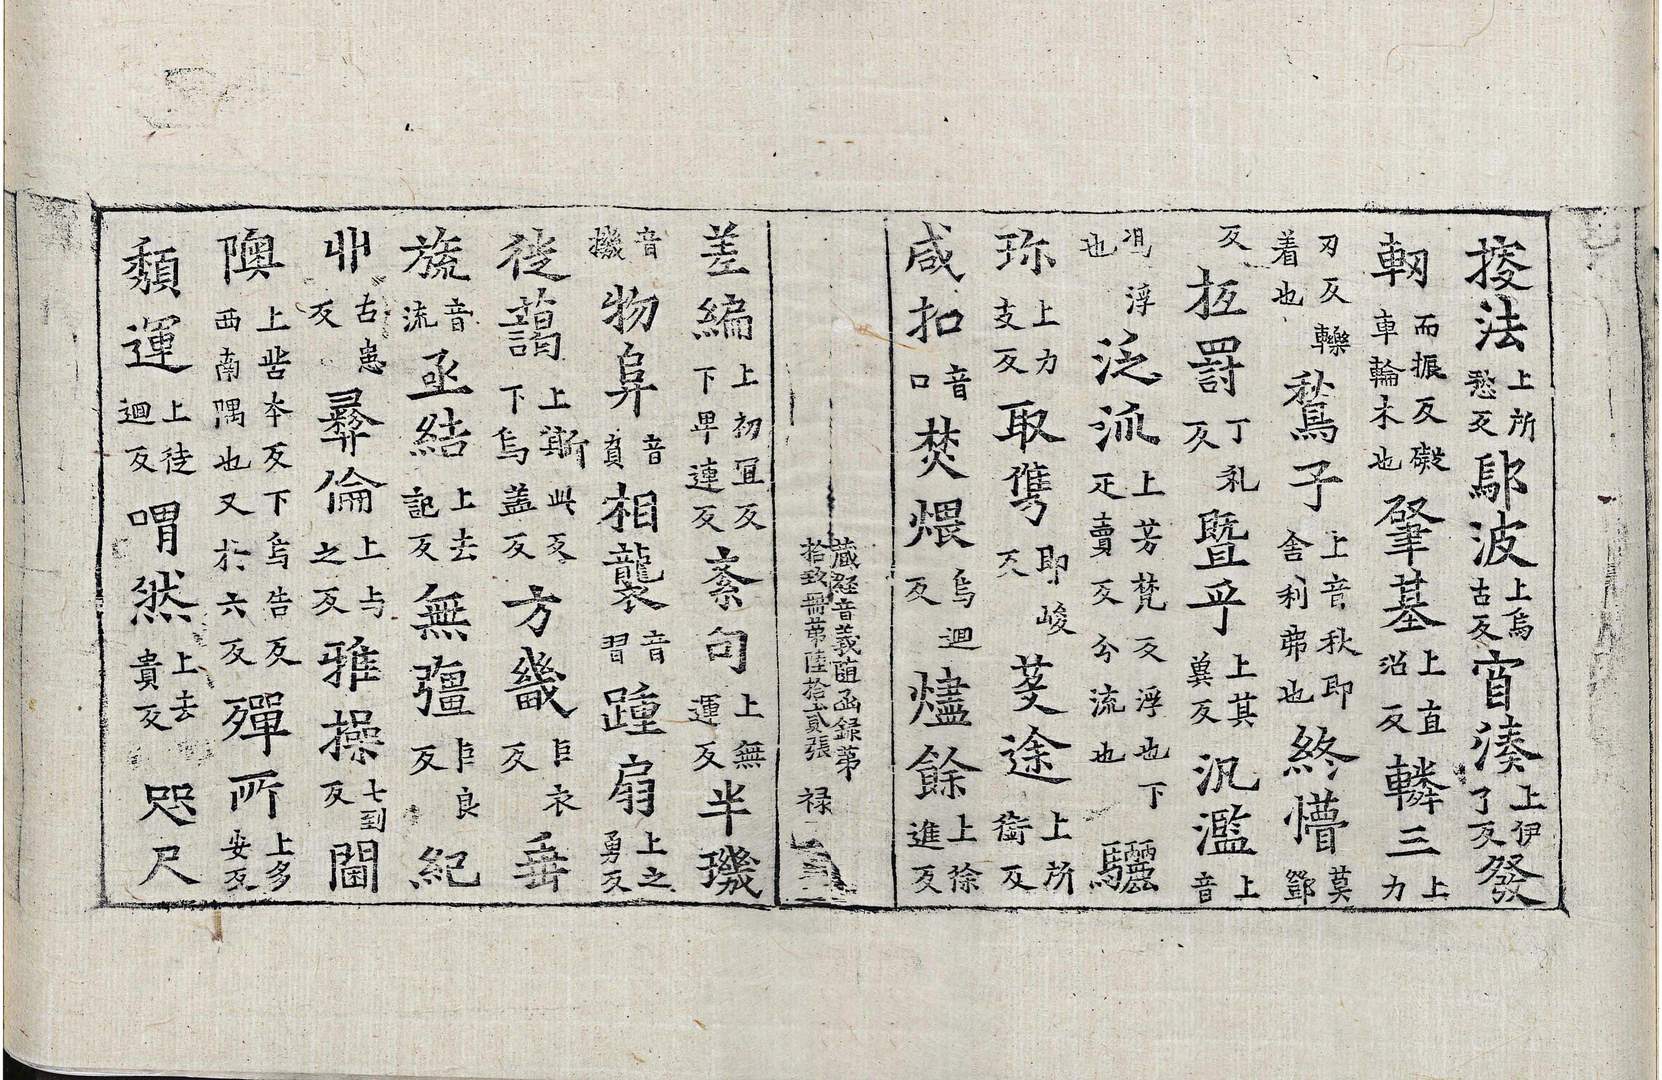 捘法上所愁反鄔波上烏古反窅溱上伊了反發
軔而振反礙車輪木也肇基上直沼反轔三上力
刃反轢着也鶖子上音秋即舍利弗也終懵莫鄧
反抂罸丁礼反曁乎上其冀反汎濫上音
汎浮也泛派上芳梵反浮也下疋賣反分流也驪
珎上力支反取雋即峻反芟途上所銜反
咸扣音口焚煨烏迴反燼餘上徐進反
藏經音義随函録苐
拾致冊苐陸拾貳張 禄
差編上初冝反下畢連反紊句上無運反半璣
音機物阜音負相襲音習踵扇上之勇反
徙藹上斯此反下烏盖反方畿巨衣反垂
旒音流亟結上去記反無彊巨良反紀
丱古患反彝倫上与之反雅操七到反閫
隩上苦本反下烏告反西南隅也又於六反殫所上多安反
頽運上徒迴反喟然上去貴反咫尺